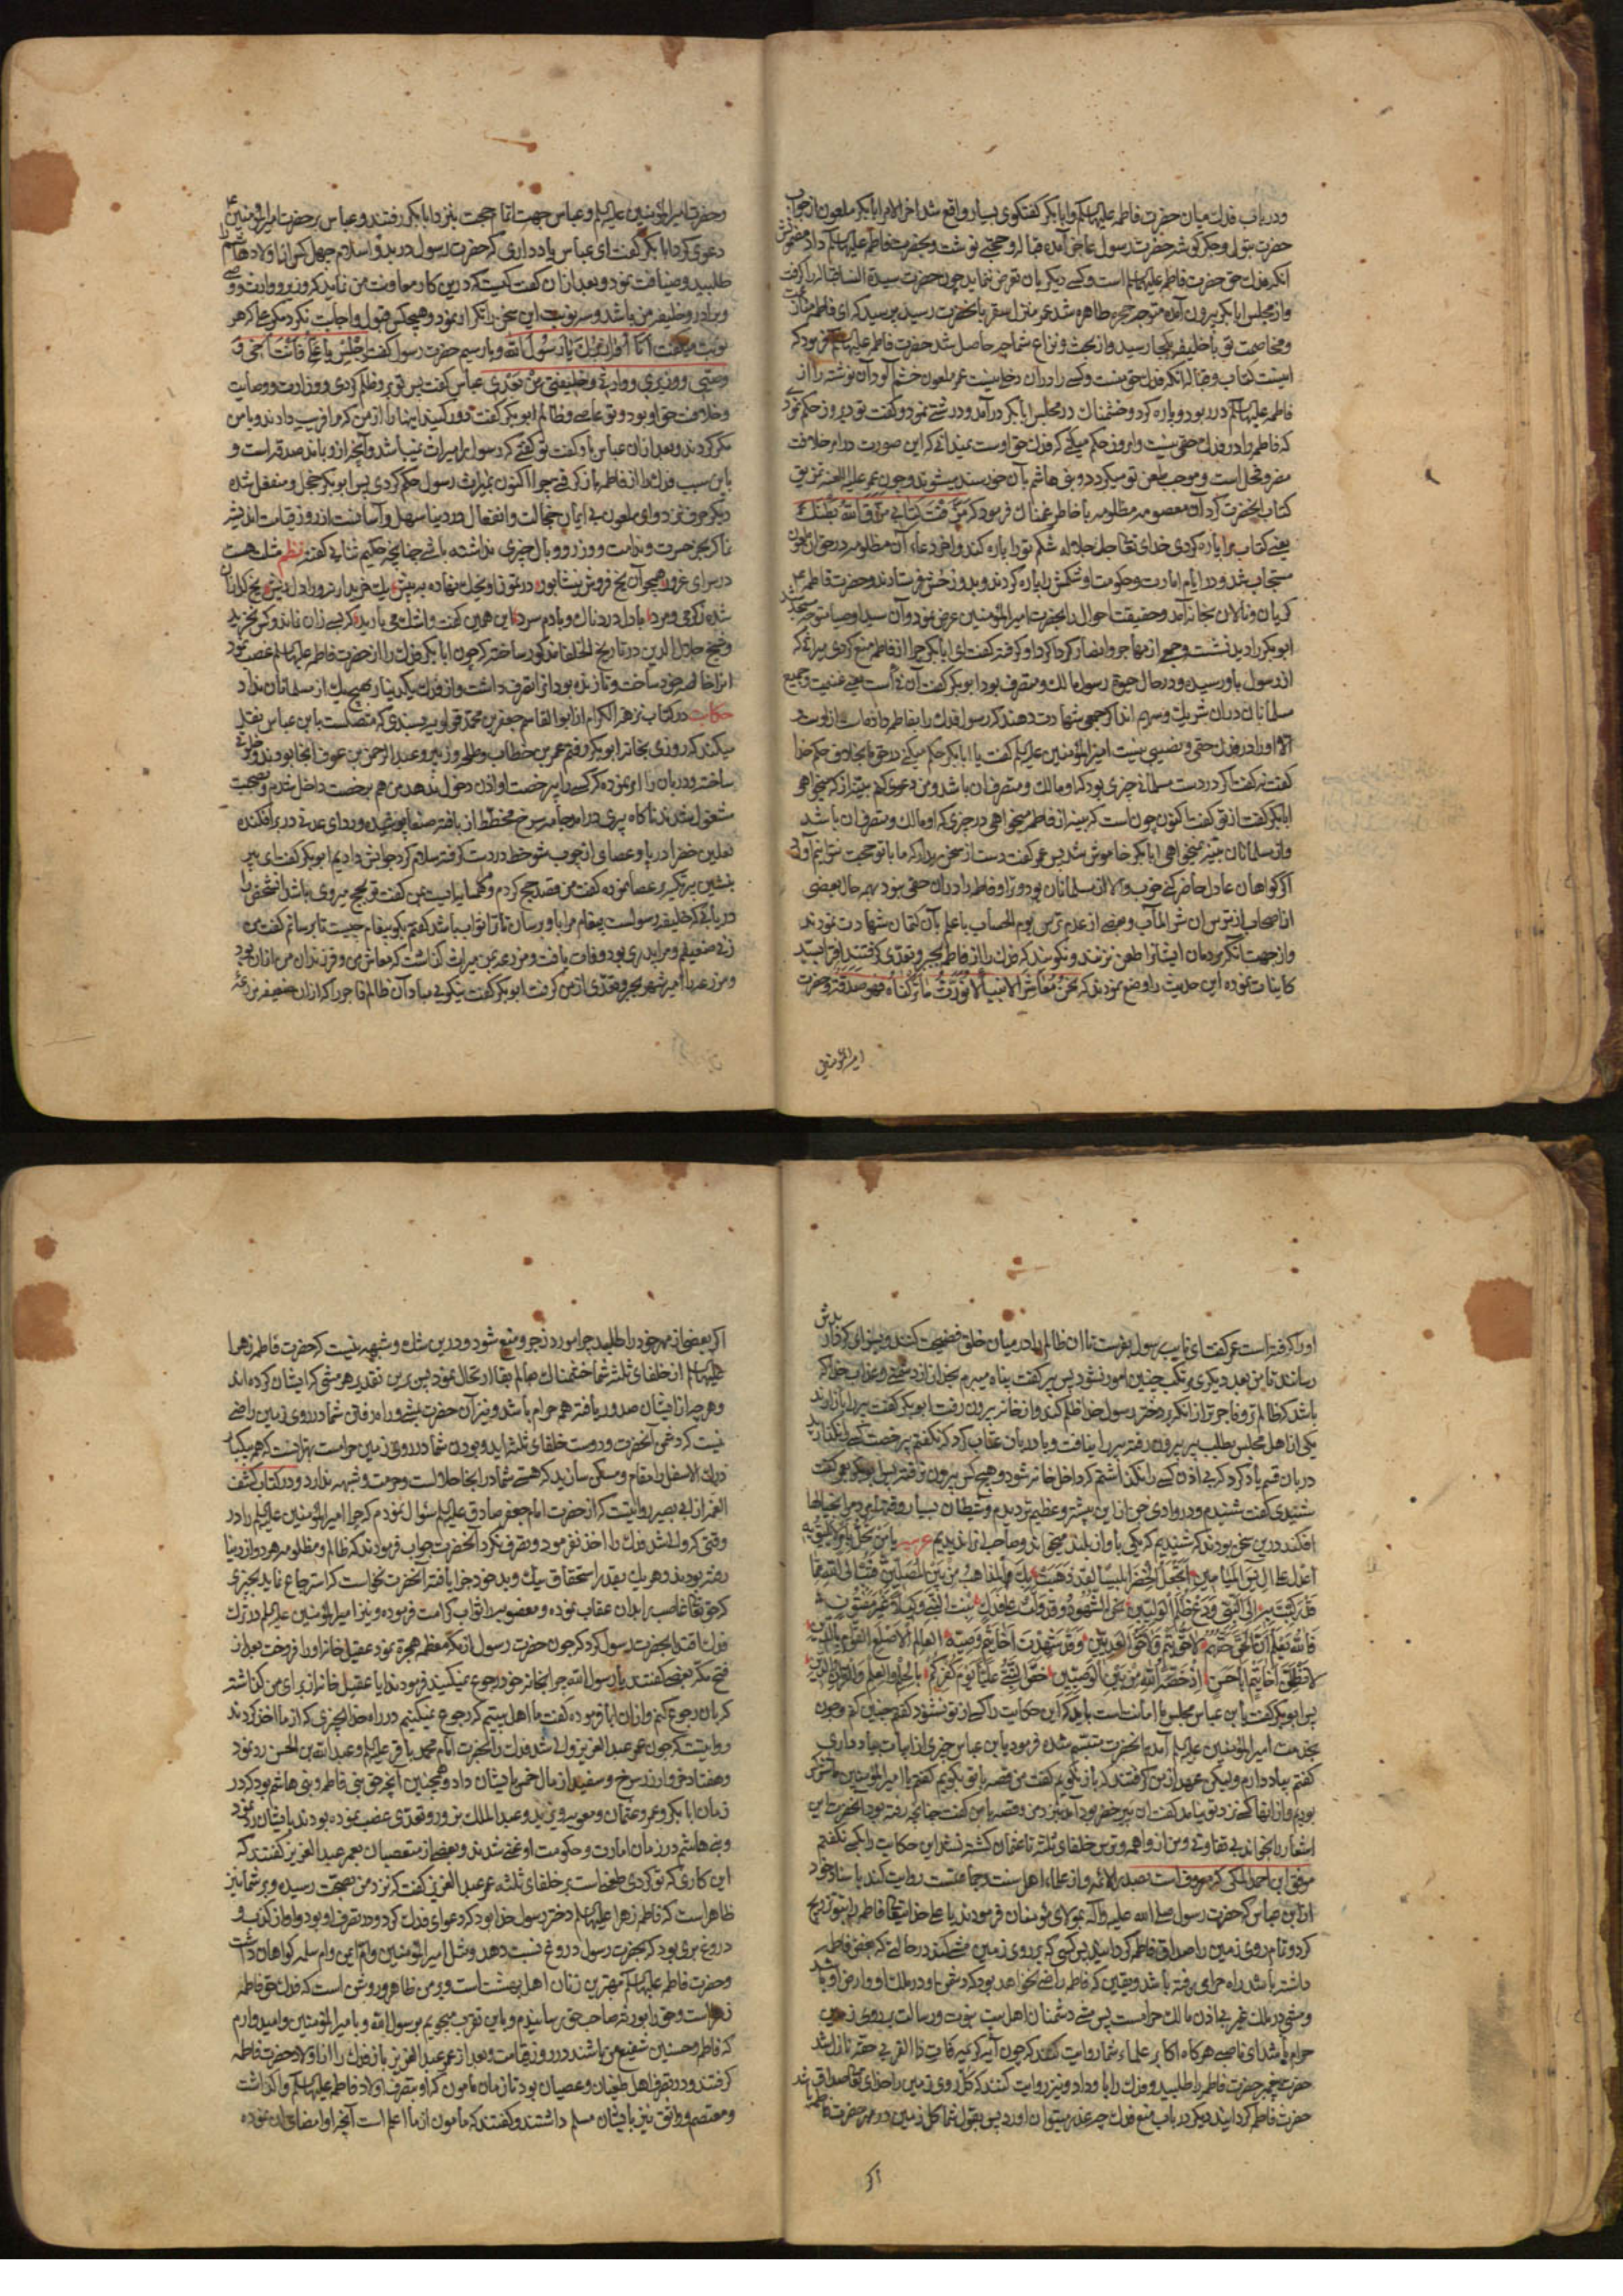 ودر باب فدك میان حضرت فاطمه علیها السلم وابابکر گفتگوی بسیار واقع شد اخر الامر ابابکر ملعون از جواب
حضرت بتول وجگر گوشه حضرت رسول عاجز آمده قباله وحجتی نوشت وبحضرت فاطمه علیها السلم داد مضمونش
آنکه فدك حق حضرت فاطمه علیها السلم است وکسی دیگر بآن تعرض ننماید چون حضرت سیدة النسا قباله را گرفت
واز مجلس ابابکر بیرون آمده متوجه حجره طاهره شد عمر بآنحضرت رسید پرسید که ای فاطمه منازعت
ومخاصمت تو با خلیفه بکجا رسید واز بحث ونزاع شما چه حاصل شد حضرت فاطمه علیها السلم فرمود که
اینست کتاب وقباله آنکه فدك حق منست وکسی را در آن دخلی نیست عمر ملعون خشم آلود آن نوشته را از
فاطمه علیها السلم در ربود وپاره کرد وخشمناك در مجلس ابابکر در آمد ودرشتی نمود وگفت تو دیروز حکم نمودی
که فاطمه را در فدك حقی نیست وامروز حکم میکنی که فدك حق اوست نمیدانی که این صورت در امر خلافت
مضر ومخل است وموجب طعن تو میگردد وبنی هاشم بآن خورسند میشوند وچون عمر علیه اللعنه تمزیق
کتاب آنحضرت کرد آن معصومه مظلومه با خاطر غمناك فرمود که مزقت کتابی مزق الله بطنك
یعنی کتاب مرا پاره کردی خدای تعالی جل جلاله شکم تو را پاره کند واخر دعاء آن مظلومه در حق آن ملعون
مستجاب شد ودر ایام امارت وحکومت او شکمش را پاره کردند وبدوزخش فرستادند وحضرت فاطمه ع
گریان ونالان بخانه آمد وحقیقت احوال را بحضرت امیر المؤمنین عرض نمود وآن سید اوصیا متوجه مسجد شد
ابوبکر را دید نشسته وجمعی از مهاجر وانصار گرداگرد او گرفته گفت ای ابابکر چرا از فاطمه منع کردی میراثی که
از رسول باو رسیده ودر حال حیوة رسول مالك ومتصرف بود ابوبکر گفت آن فئ است یعنی غنیمت وجمیع
مسلمانان در آن شریك وسهیم اند اگر جمعی شهادت دهند که رسول فدك را بفاطمه داده است از اوست
والا او را در فدك حقی ونصیبی نیست امیر المؤمنین علیه السلم گفت یا ابابکر حکم میکنی در حق ما بخلاف حکم خدا
گفت نه گفت اگر در دست مسلمانی چیزی بود که او مالك ومتصرف آن باشد ومن دعوی کنم بینه از که میخواهی
ابابکر گفت از تو گفت اکنون چون است که بینه از فاطمه میخواهی در چیزی که او مالك ومتصرف آن باشد
واز مسلمانان بینه نمیخواهی ابابکر خاموش شد پس عمر گفت دست از سخن بردار که ما با تو حجت نتوانیم آورد
اگر گواهان عادل حاضر کنی خوب والا آن مسلمانان بود وترا وفاطمه را در آن حقی نبود بهمه حال بعضی
از اصحاب از ترس آن شر المآب وبعضی از عدم ترس یوم الحساب با علم بآن کتمان شهادت نمودند
واز جهت آنکه مردمان ایشانرا طعن نزنند ونگویند که فدك را از فاطمه بجبر وتعدی گرفتند افترا بسید
کاینات نموده این حدیث را وضع نمودند که نحن معاشر الانبیاء لا نورث ما ترکناه فهو صدقة وحضرت
امیر المؤمنین
وحضرت امیر المؤمنین علیه السلم وعباس جهت اتمام حجت بنزد ابابکر رفتند وعباس بر حضرت امیر المؤمنین ع
دعوی کرد ابابکر گفت ای عباس یاد داری که حضرت رسول در بدو اسلام چهل کس از اولاد هاشم
طلبید وضیافت نمود وبعد از آن گفت کیست که درین کار معاونت من نماید که وزیر ووارث ووصی
وبرادر وخلیفه من باشد وسه نوبت این سخن را تکرار نمود وهیچکس قبول واجابت نکرد مگر علی که هر
نوبت میگفت انا أوازرك یا رسول الله وبار سیم حضرت رسول گفت اجلس یا علی فانت اخی و
وصیی ووزیری ووارثی وخلیفتی من بعدی عباس گفت پس تو برو ظلم کردی ووزارت ووصایت
وخلافت حق او بود وتو غاصب وظالم ابوبکر گفت دور کنید اینها را از من که مرا فریب دادند وبا من
مکر کردند وبعد از آن عباس باو گفت تو گفتی که رسول را میراث نمیباشد وآنچه ازو بماند صدقه است و
باین سبب فدك را از فاطمه باز گرفتی چرا اکنون بمیراث رسول حکم کردی پس ابوبکر خجل ومنفعل شده
دیگر حرف نزد وای ملعون بی ایمان خجالت وانفعال در دنیا سهل وآسانست از روز قیامت اندیشه
نما که بجز حسرت وندامت ووزر ووبال چیزی نداشته باشی چنانچه حکیم ثنایی گفته نظم مثلت هست
در سرای غرور همچو آن یخ فروش نیشابور در تموز او یخك نهاده به پیش یك خریدار نه ودل ریش یخ گدازان
شده ز گرمی ومرد با دل دردناك وبا دم سرد این همی گفت واشك می بارید که بسی زان نماند وکس نخرید
وشیخ جلال الدین در تاریخ الخلفا مذکور ساخته که چون ابابکر فدك را از حضرت فاطمه علیها السلم غصب نمود
آنرا خالصه خود ساخت وتا زنده بود آنرا تصرف داشت واز فدك یکدینار بهیچیك از مسلمانان نداد
حکایت در کتاب زهر الکرام از ابوالقاسم جعفر بن محمد قولویه بسندی که متصلست بابن عباس نقل
میکند که روزی بخانه ابوبکر رفتم عمر بن خطاب وطلحه وزبیر وعبد الرحمن بن عوف آنجا بودند وخلوتی
ساخته ودربان را امر نموده که کسی را بی رخصت او اذن دخول ندهد من هم برخصت داخل شدم وبصحبت
مشغول شدند ناگاه پیری در آمد جامه سرخ مخطط از بافته صنعا پوشیده وردای عدنی در بر افکنده
نعلین خضر در پا وعصای از چوب شوخط در دست گرفته سلام کرد جوابش دادیم ابوبکر گفت ای پیر
بنشین پیر تکیه بر عصا نموده گفت من قصد حج کردم وهمسایه ایست گفت تو بحج میروی باشد آنشخص را
دریابی که خلیفه رسولست پیغام مرا باو برسان تا ترا ثواب باشد گفتم بگو پیغام چیست تا برسانم گفت من
زنی ضعیفم ومرا پدری بود وفات یافت ومزرعه بمن میراث گذاشت که معاش من وفرزندان من از آن بود
ومزرعه را امیر شهر بجبر وتعدی از من گرفت ابوبکر گفت نیکویی مباد آن ظالم فاجر را که از آن ضعیفه مزرعه
او را گرفته است عمر گفت ای نایب رسول بفرست تا آن ظالم را در میان خلق فضیحت کنند وبسزای کردارش
رسانند تا من بعد دیگری مرتکب چنین امور نشود پس پیر گفت پناه میبرم بخدا از دشمنی وعذاب خدا که
باشد که ظالم تر وفاجر تر از آنکه بر دختر رسول خدا ظلم کند واز خانه بیرون رفت ابوبکر گفت پیر را باز آرند
یکی از اهل مجلس بطلب پیر بیرون رفته پیر را نیافت وبا دربان عتاب کرد که نگفتم بی رخصت کسی را نگذارید
دربان قسم یاد کرد که بی اذن کسی را نگذاشتم که داخل خانه شود وهیچکس بیرون نرفته پس ابوبکر بعمر گفت
شنیدی گفت شنیدم ودر وادی جن از این بیشتر وعظیم تر دیدم وشیطان بسیار وقتها این مرد را بخیالها
افکند درین سخن بودند که شنیدیم که یکی بآواز بلند میخواند وصاحب آنرا ندیدیم عربیه
پس ابوبکر گفت یا ابن عباس مجلس را امانت است باید که این حکایت را کسی از تو نشنود گفتم چنین کنم وچون
بخدمت امیر المؤمنین علیه السلم آمدم آنحضرت متبسم شده فرمود یا بن عباس چیزی از ابیات بیاد داری
گفتم بیاد دارم ولیکن عهد از من گرفتند که باز نگویم گفت من قصه با تو بگویم گفتم یا امیر المؤمنین
اشعار را بخواند بی تفاوتی ومن از واهمه وترس خلفای ثلثه تا عثمان کشته نشد این حکایت را بکسی نگفتم
موفق ابن احمد المکی که معروف است بصدر الائمه واز علماء اهل سنت وجماعتست روایت کند باسناد خود
از ابن عباس که حضرت رسول صلی الله علیه وآله بمولای مؤمنان فرمودند یا علی خدایتعالی فاطمه را بتو تزویج
کرد وتمام روی زمین را صداق فاطمه گردانید پس کسی که بر روی زمین مشی کند در حالتی که بغض فاطمه
داشته باشد راه حرامی رفته باشد ویقین که فاطمه راضی نخواهد بود که دشمن او در ملك او وارض او باشد
ومشی در ملك غیر بی اذن مالك حرامست پس مشی دشمنان اهل بیت نبوت ورسالت بر روی زمین
حرام باشد ای ناصبی هر گاه اکابر علماء شما روایت کنند که چون آیه کریمه وآت ذا القربی حقه نازل شد
حضرت پیغمبر حضرت فاطمه را طلبید وفدك را باو داد ونیز روایت کنند که کل روی زمین را خدای تعالی صداق
حضرت فاطمه گردانید دیگر در باب منع فدك چه عذر میتوان آورد پس بقول شما کل زمین در مهر حضرت فاطمه باشد
اگر
اگر بعضی از مهر خود را طلبید چرا مورد زجر ومنع شود ودرین شك وشبهه نیست که حضرت فاطمه زهرا
علیها السلم از خلفای ثلثه شما خشمناك بعالم بقا ارتحال نمود پس برین تقدیر هر مشی که ایشان کرده اند
وهر چه از ایشان صدور یافته همه حرام باشد ونیز آن حضرت بمشی وراه رفتن شما در روی زمین راضی
نیست که دشمن آنحضرت ودوست خلفای ثلثه اید وبودن شما در روی زمین حرامست بهتر آنست که همه یکبار
درك الاسفل را مقام ومسکن سازید که هستی شما در آنجا حلال است وحرمت وشبهه ندارد ودر کتاب کشف
الغمه از ابی بصیر روایتست که از حضرت امام جعفر صادق علیه السلم سؤال نمودم که چرا امیر المؤمنین علیه السلم را در
وقتی که والی شد فدك را اخذ نفرمود وتصرف نکرد آنحضرت جواب فرمودند که ظالم ومظلومه هر دو از دنیا
رفته بودند وهر یك بقدر استحقاق نیك وبد خود جزا یافته آنحضرت نخواست که استرجاع نماید بچیزی
که حق تعالی غاصب را بدان عقاب نموده ومغصوبه را ثواب کرامت فرموده ونیز امیر المؤمنین علیه السلم در ترك
فدك اقتدا بحضرت رسول کرد که چون حضرت رسول از مکه معظمه هجرة نمود عقیل خانه او را فروخت بعد از
فتح مکه بعضی گفتند یا رسول الله چرا بخانه خود رجوع نمیکنید فرمودند آیا عقیل خانه از برای من گذاشته
که بآن رجوع کنم وازان ابا فرموده گفت ما اهل بیتیم که رجوع نمیکنیم در راه خدا بچیزی که از ما اخذ کردند
وروایتست که چون عمر عبد العزیز والی شد فدك را بحضرت امام محمد باقر علیه السلم وعبد الله بن الحسن رد نمود
وهفتاد خروار زر سرخ وسفید از مال خمس بایشان داد وهمچنین آنچه حق بنی فاطمه وبنی هاشم بود که در
زمان ابابکر وعمر وعثمان ومعویه ویزید وعبد الملك بزور وتعدی غصب نموده بودند بایشان رد نمود
وبنی هاشم در زمان امارت وحکومت او غنی شدند وبعضی از متعصبان بعمر عبد العزیز گفتند که
این کاری که تو کردی طعن است بر خلفای ثلثه عمر عبد العزیز گفت که نزد من بصحت رسیده وبر شما نیز
ظاهر است که فاطمه زهرا علیها السلم دختر رسول خدا بود که دعوای فدك کرد ودر تصرف او بود واو از کذب و
دروغ بری بود که بحضرت رسول دروغ نسبت دهد ومثل امیر المؤمنین وام ایمن وام سلمه گواهان داشت
وحضرت فاطمه علیها السلم مهترین زنان اهل بهشت است وبر من ظاهر وروشن است که فدك حق فاطمه
زهراست وحق را بورثه صاحب حق رسانیدم وباین تقرب میجویم برسول الله وبامیر المؤمنین وامیدوارم
که فاطمه وحسنین شفیع من باشند در روز قیامت وبعد از عمر عبد العزیز باز فدك را از اولاد حضرت فاطمه
گرفتند ودر تصرف اهل طغیان وعصیان بود تا زمان مامون که او بتصرف اولاد فاطمه علیها السلم وا گذاشت
ومعتصم وواثق نیز بایشان مسلم داشتند وگفتند که مامون از ما اعلم است آنچه او امضای آن نموده